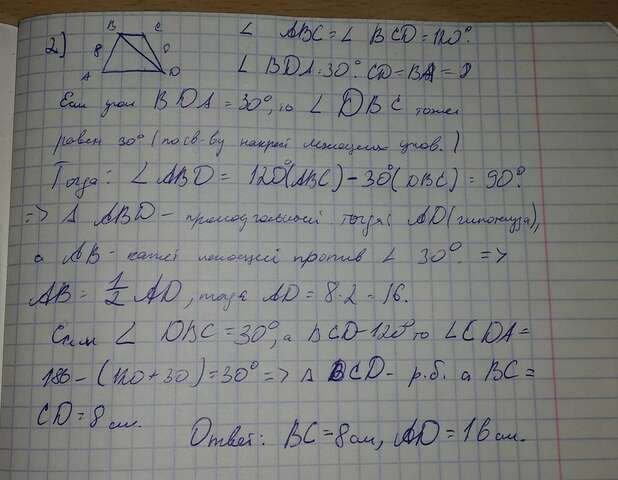 2) B C 8 8 A D
∠ ABC = ∠ BCD = 120°.
∠ BDA = 30° CD = BA = 8
Если угол BDA = 30°, то ∠ DBC тоже
равен 30° (по св-ву накрест лежащих углов.)
Тогда: ∠ ABD = 120°(ABC) - 30°(DBC) = 90°.
=> Δ ABD - прямоугольный тогда: AD (гипотенуза),
а AB - катет лежащий против ∠ 30°. =>
AB = 1/2 AD, тогда AD = 8·2 = 16.
Если ∠ DBC = 30°, а BCD - 120° то ∠CDA =
180 - (120+30) = 30° => Δ BCD - р.б. а BC =
CD = 8 см.
Ответ: BC = 8 см, AD = 16 см.